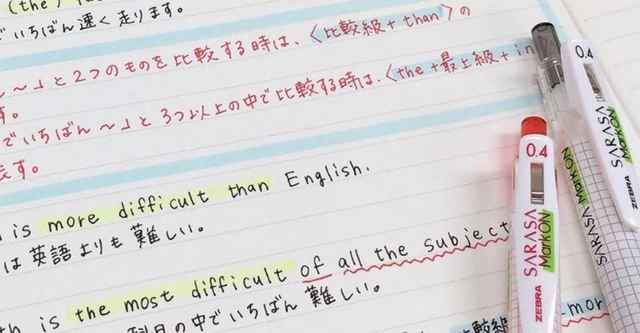 (the)
でいちばん速く走ります。
〜」と2つのものを比較する時は、〈比較級+than〉の
す。
でいちばん〜」と3つ以上の中で比較する時は、〈the+最上級+in
表す。
is more difficult than English.
は英語よりも難しい。
is the most difficult of all the subject
科目の中でいちばん難しい。
比較級
-mor
0.4
SARASA
MarkON
ZEBRA
0.4
SARASA
MarkON
ZEBRA